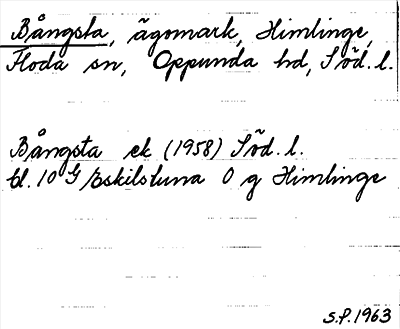 Bångsta, ägomark, Himlinge,
Floda sn, Oppunda hd, Söd. l.
Bångsta ek (1958) Söd. l.
bl. 10 G Eskilstuna O g Himlinge
S.P. 1963